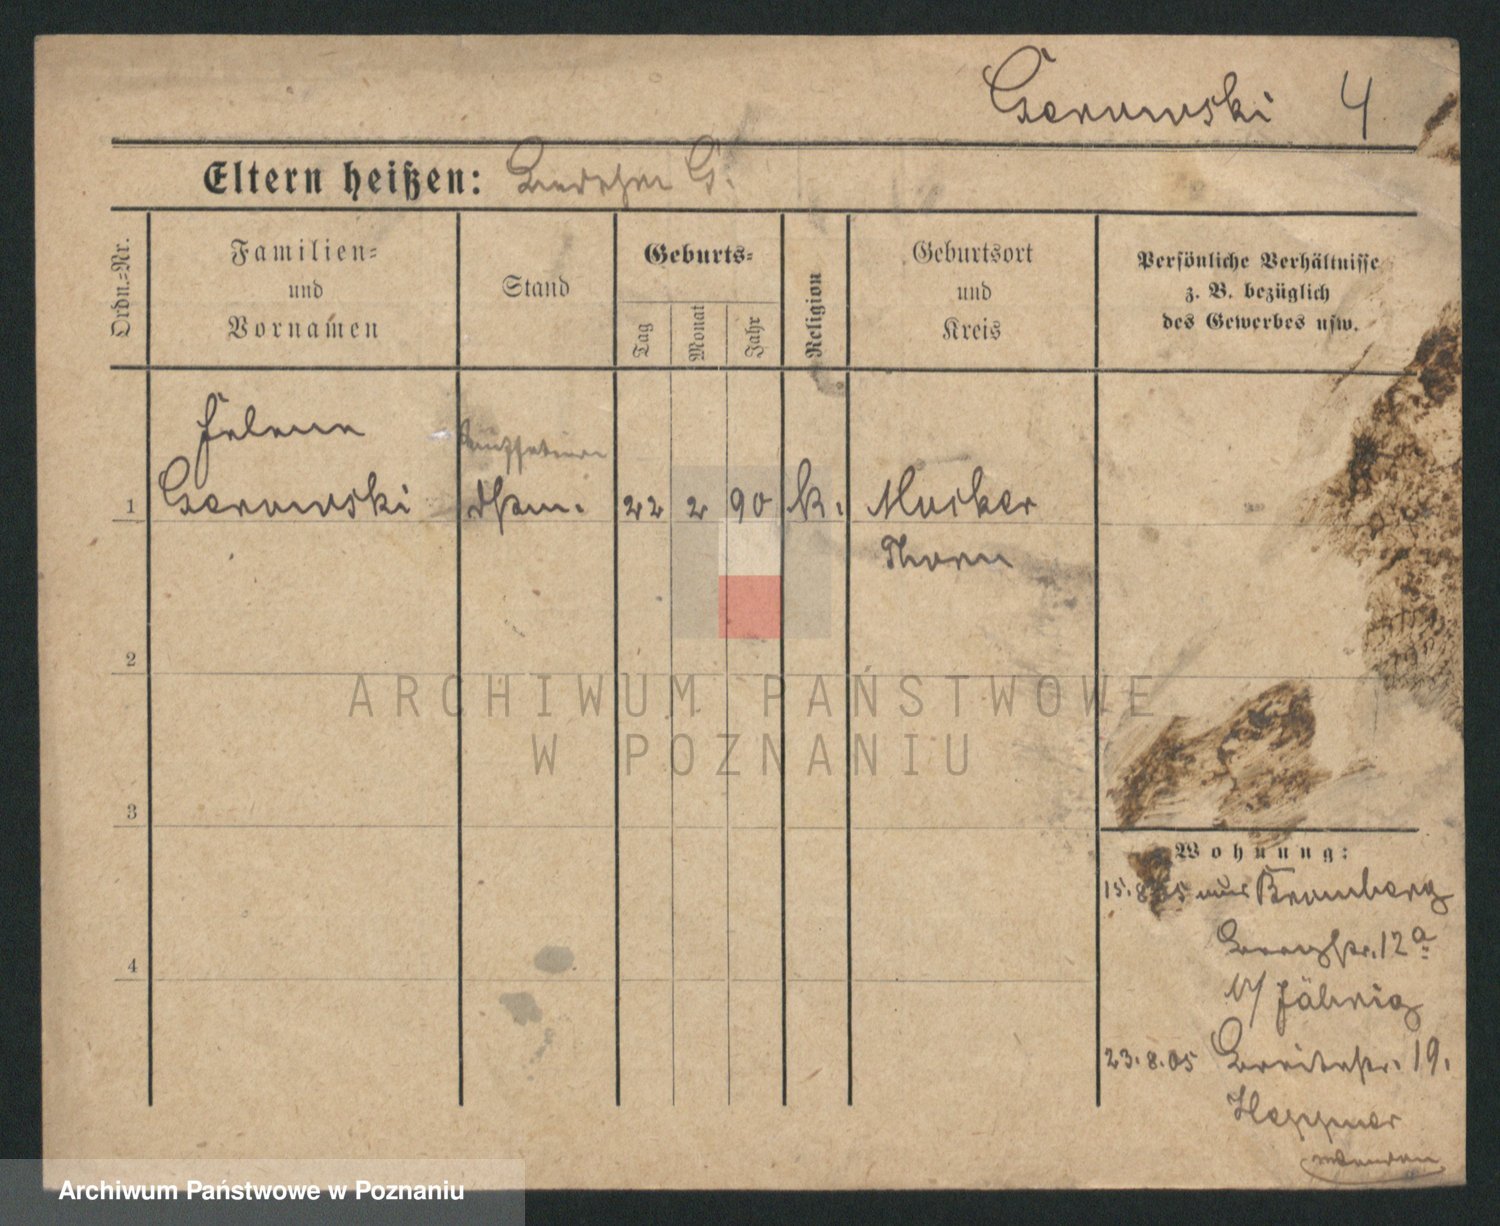 Czerowski 4
Eltern heißen:
Ordn.-Nr.
Familien-
und
Vornamen
Stand
Geburts-
Tag
Monat
Jahr
Religion
Geburtsort
und
Kreis
Persönliche Verhältnisse
z. B. bezüglich
des Gewerbes usw.
Helene
1 Czerowski Dstm. 22 2 90 k. Mocker
Thorn
2
3
4
Wohnung:
15.8.05 aus Bromberg
Bergstr. 12a
b/ Jährig
23.8.05 Breitestr. 19.
Heppner
ARCHIWUM PAŃSTWOWE
W POZNANIU
Archiwum Państwowe w Poznaniu